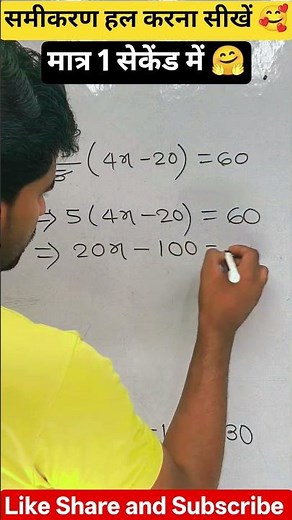 समीकरण हल करना सीखें 🥰
मात्र 1 सेकेंड में 🤗
(4x-20) = 60
⇒ 5(4x-20) = 60
⇒ 20x - 100 =
30
Like Share and Subscribe